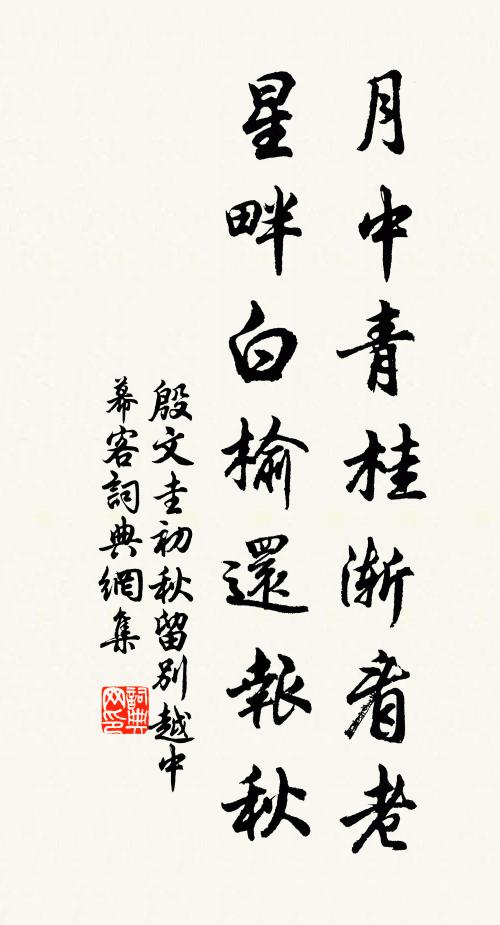 月中青桂漸看老
星畔白榆還報秋
殷文圭初秋留別越中
幕客詞典網集
詞典网印